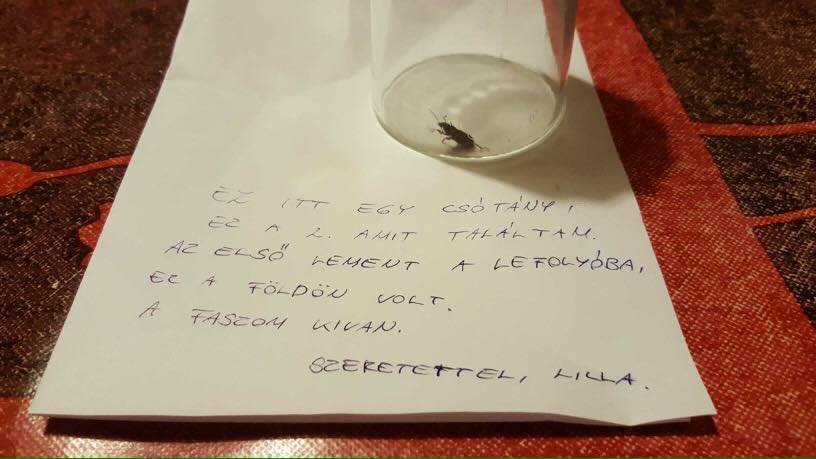 EZ ITT EGY CSÓTÁNY!
EZ A 2. AMIT TALÁLTAM.
AZ ELSŐ LEMENT A LEFOLYÓBA,
EZ A FÖLDÖN VOLT.
A FASZOM KIVAN.
SZERETETTEL, LILLA.